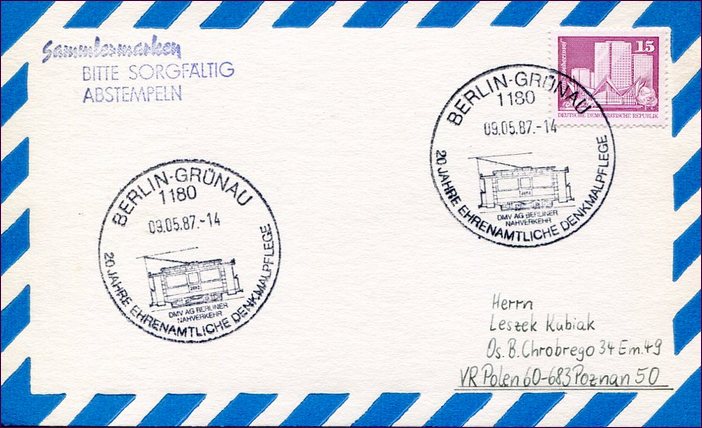 Sammlermarken
BITTE SORGFÄLTIG
ABSTEMPELN
15
DEUTSCHE DEMOKRATISCHE REPUBLIK
BERLIN-GRÜNAU
1180
09.05.87.-14
DMV AG BERLINER
NAHVERKEHR
20 JAHRE EHRENAMTLICHE DENKMALPFLEGE
BERLIN-GRÜNAU
1180
09.05.87.-14
DMV AG BERLINER
NAHVERKEHR
20 JAHRE EHRENAMTLICHE DENKMALPFLEGE
Herrn
Leszek Kubiak
Os. B. Chrobrego 34 Em. 49
VR Polen 60-683 Poznan 50